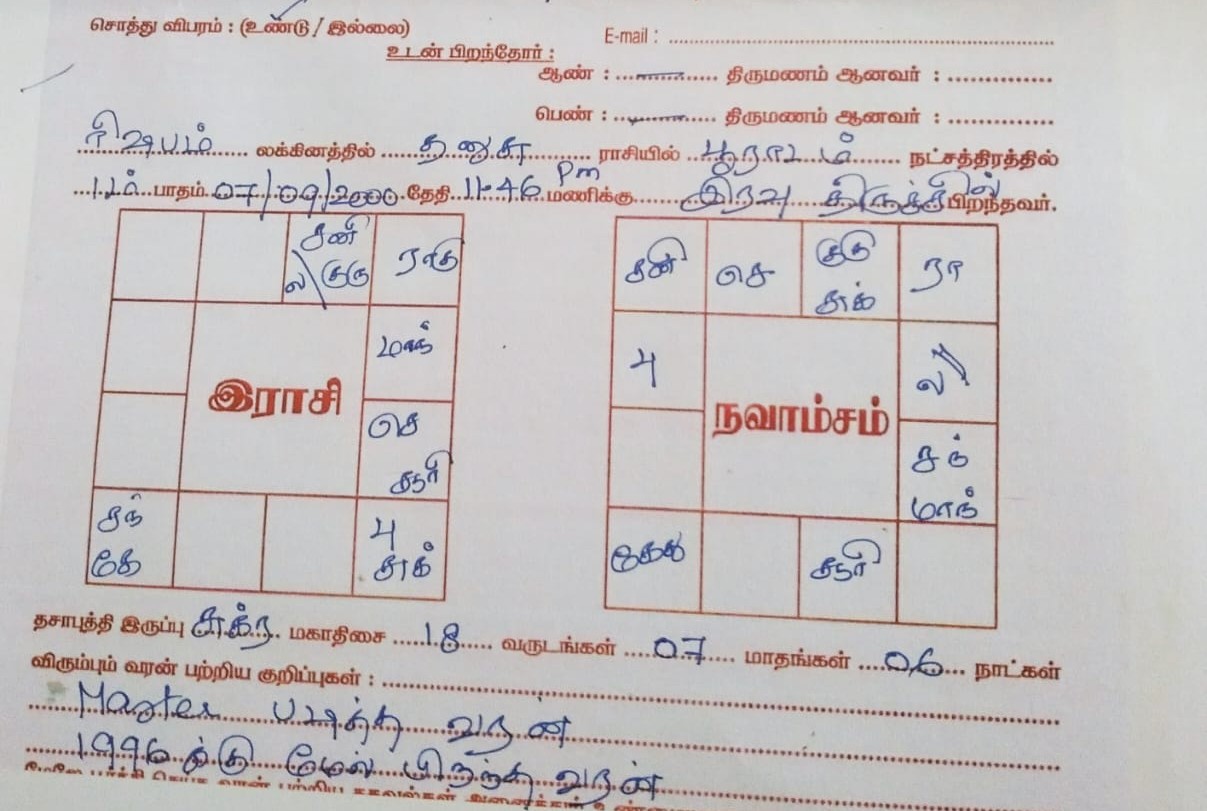 சொத்து விபரம் : (உண்டு / இல்லை)
E-mail :
உடன் பிறந்தோர் :
ஆண் : திருமணம் ஆனவர் :
பெண் : திருமணம் ஆனவர் :
ரிஷபம் லக்கினத்தில் தனுசு ராசியில் பூராடம் நட்சத்திரத்தில்
1ம் பாதம் 07/09/2000 தேதி 11-46 Pm மணிக்கு இரவு பிறந்தவர்.
சனி ராகு
ல/ குரு
மாந்
இராசி
செ
சூரி
சந் பு
கே சுக்
சனி செ குரு ரா
சுக்
பு ல/
நவாம்சம்
சந்
மாந்
கேது சூரி
தசாபுத்தி இருப்பு சுக்ர மகாதிசை 18 வருடங்கள் 07 மாதங்கள் 06 நாட்கள்
விரும்பும் வரன் பற்றிய குறிப்புகள் :
Master படித்த வரன்
1996க்கு மேல் பிறந்த வரன்